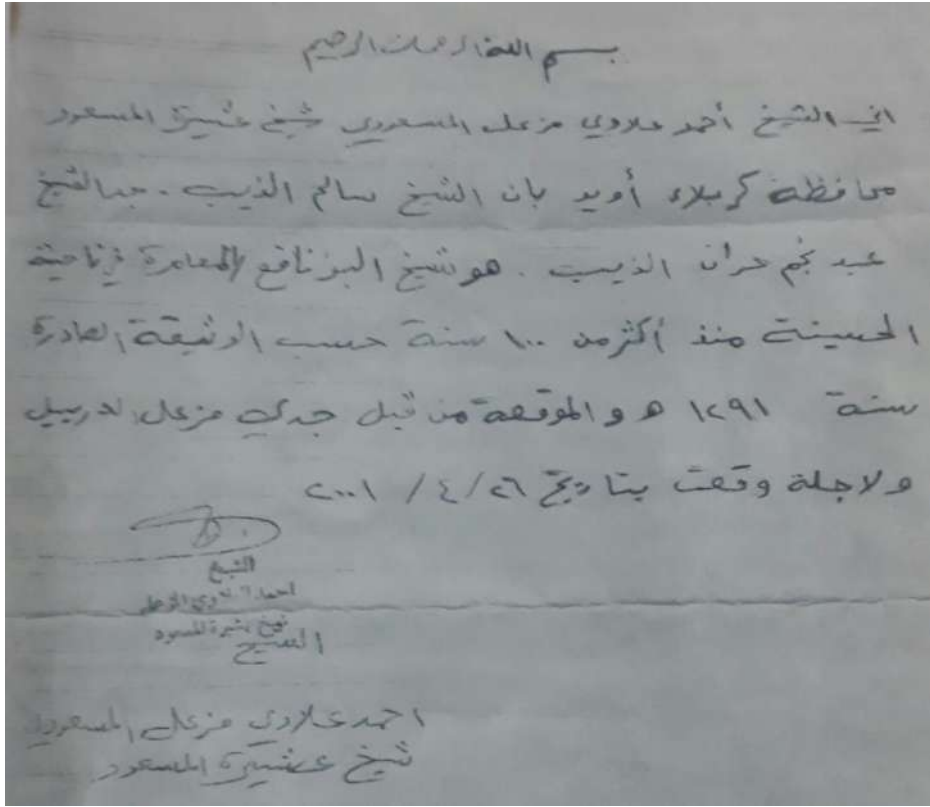 بسم الله الرحمن الرحيم
اني الشيخ أحمد علاوي مزعل المسعودي شيخ عشيرة المسعود
محافظة كربلاء أويد بان الشيخ سالم الذيب . جد الشيخ
عبد نجم حران الذيب . هو شيخ البو نافع المعامرة في ناحية
الحسينية منذ أكثر من ١٠٠ سنة حسب الوثيقة الصادرة
سنة ١٢٩١ ه و الموقعة من قبل جدي مزعل
ولاجلة وقعت بتاريخ ٢٦/ ٤/ ٢٠٠١
الشيخ
احمد
شيخ عشيرة المسعود
الشيخ
احمد علاوي مزعل المسعودي
شيخ عشيرة المسعود